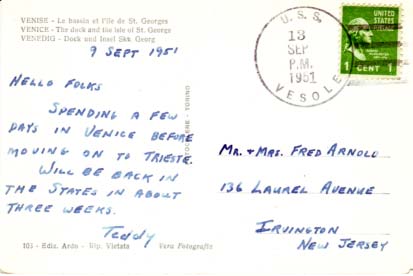 VENISE - Le bassin et l'île de St. Georges
VENICE - The dock and the isle of St. George
VENEDIG - Dock und Insel Skt Georg
9 SEPT 1951
HELLO FOLKS
SPENDING A FEW
DAYS IN VENICE BEFORE
MOVING ON TO TRIESTE.
WILL BE BACK IN
THE STATES IN ABOUT
THREE WEEKS.
Teddy
103 - Ediz. Ardo - Rip. Vietata Vera Fotografia
TORINO
U.S.S. VESOLE
13
SEP
P.M.
1951
UNITED STATES
POSTAGE
1 CENT 1
MR. + MRS. FRED ARNOLD
136 LAUREL AVENUE
IRVINGTON
NEW JERSEY